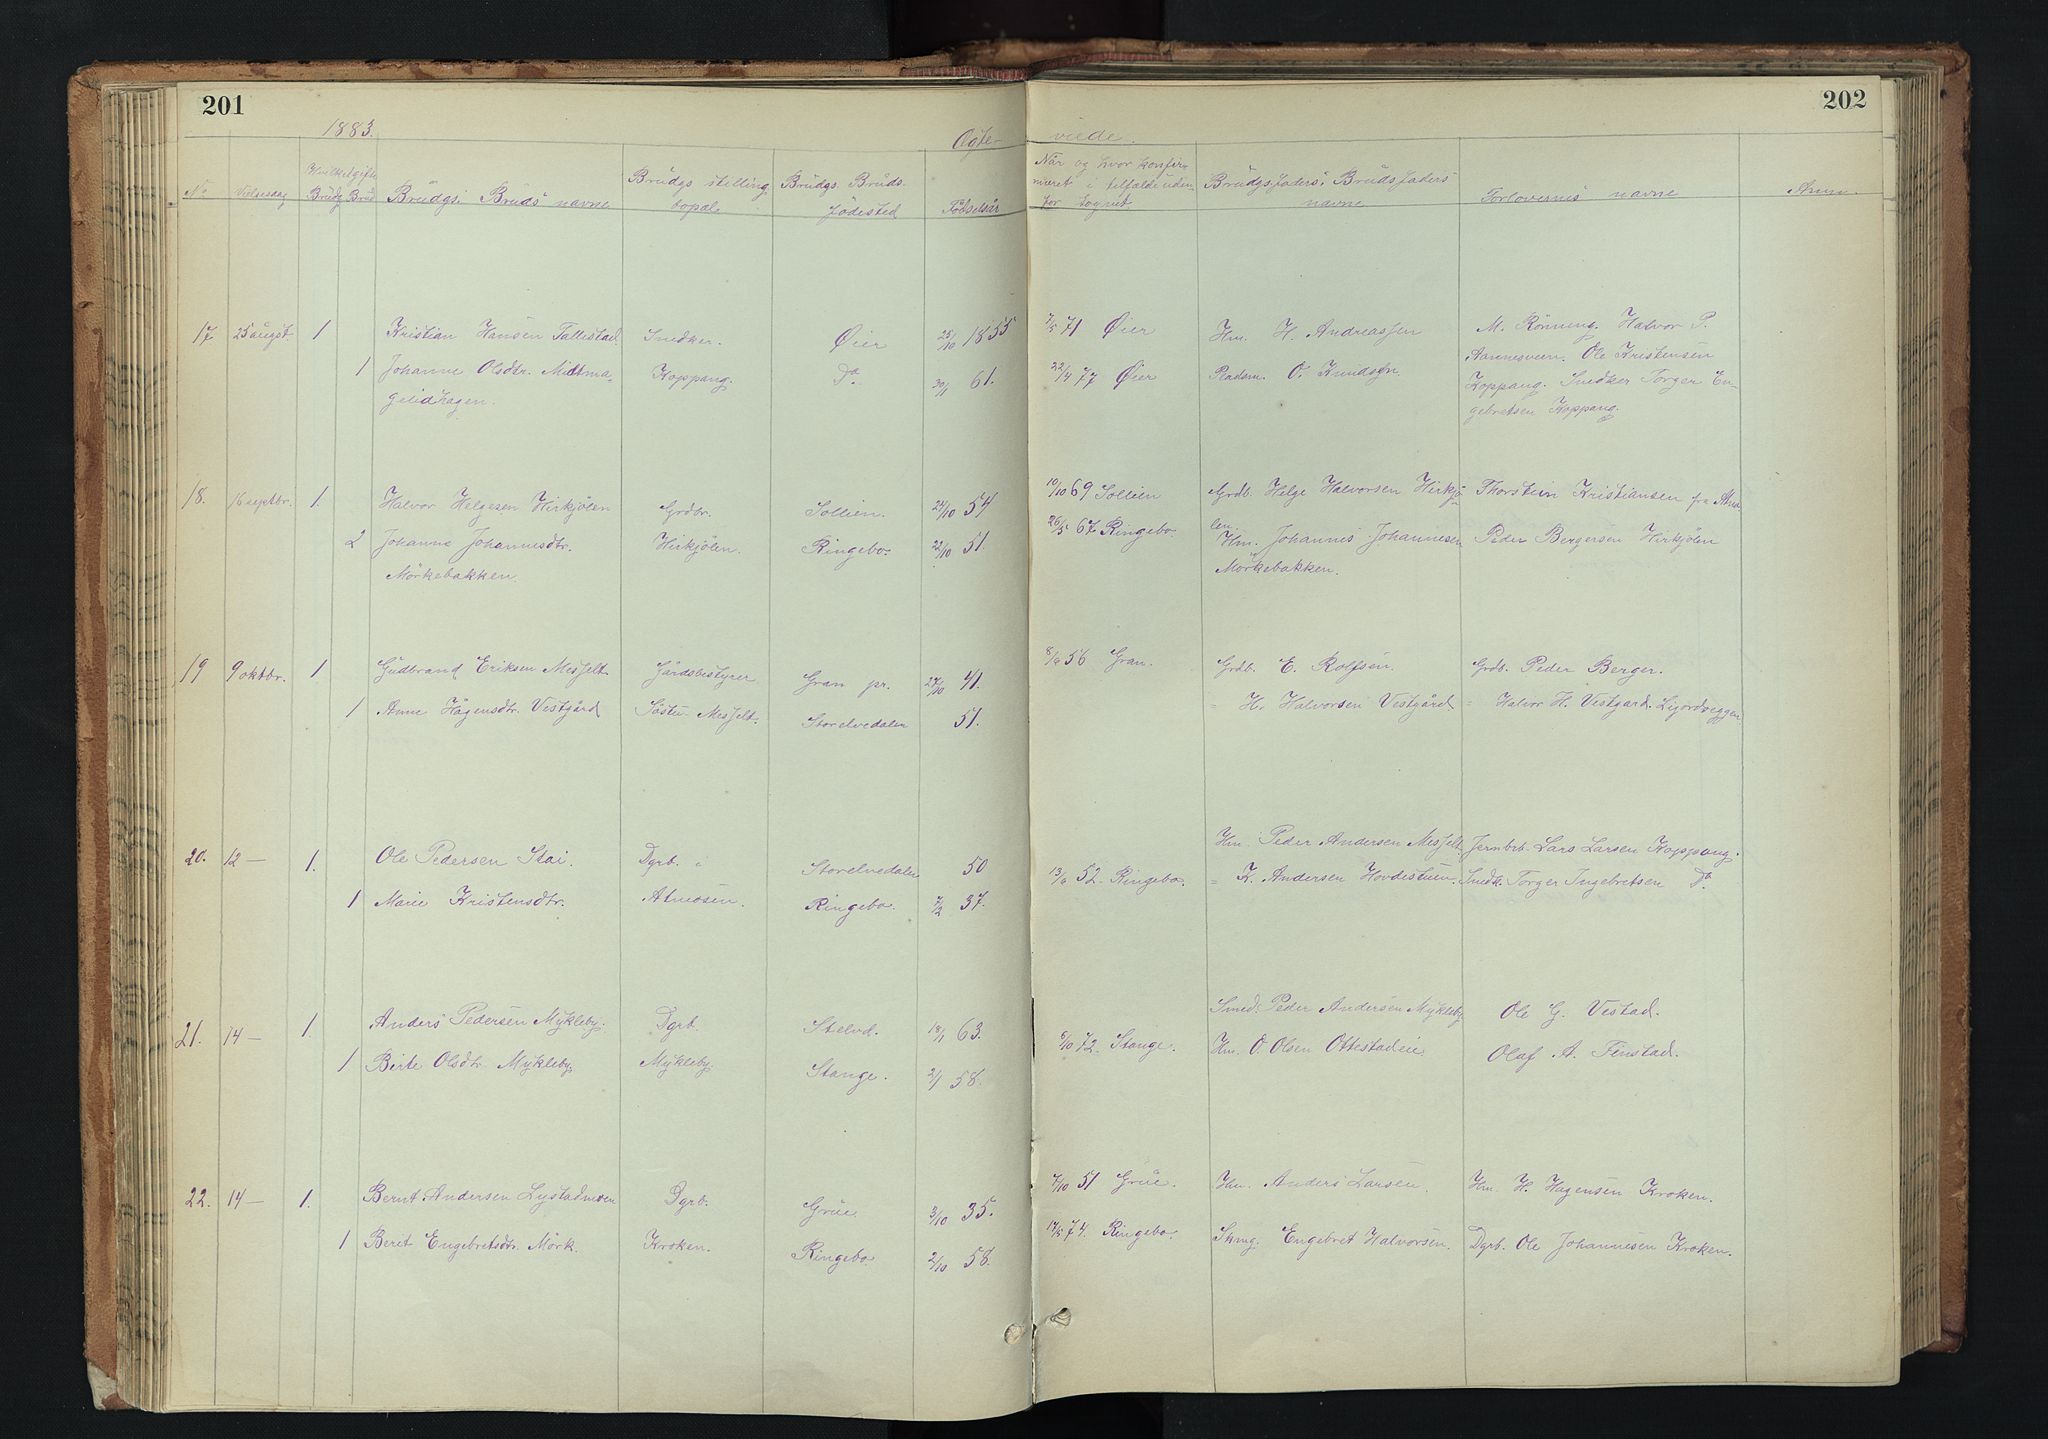 201
202
1883.
Ægte-
viede.
No
Vielsesdag
Hvilket gifte
Brudg Brud
Brudgs: Bruds navne
Brudgs stilling
bopæl
Brudgs. Bruds.
fødested
Fødselsår
Når og hvor konfir
meret i tilfælde uden
for sognet
Brudgs faders: Bruds faders
navne
Forlovernes navne
Anm.
17 25 augst 1 Kristian Hansen Tallestad. Snedker. Øier 25/10 1855 7/5 71 Øier Hm. H. Andreassen M. Rönning. Halvor P.
Aannesveen. Ole Kristensen
1 Johanne Olsdtr. Midtma- Koppang. Do 30/1 61. 22/4 77 Øier O. Knudsen Koppang. Snedker Torger En-
gelidhagen. gebretsen Koppang.
18. 16 septbr. 1. Halvor Helgesen Hirkjölen Grdbr. Sollien. 24/10 54 10/10 69 Sollien Grdb. Helge Halvorsen Hirkjö- Thorstein Kristiansen fra
len.
2 Johanne Johannesdtr. Hirkjölen. Ringebo. 22/10 51. 26/5 67 Ringebo. Hm. Johannes Johannesen Peder Bergersen Hirkjölen
Mörkebakken. Mörkebakken.
19 9 oktbr. 1 Gudbrand Eriksen Messelt Gårdsbestyrer Gran pr. 27/10 41. 56 Gran. Grdb. E. Rolfsen. Grdb. Peder Berger.
1 Anne Hågensdtr. Vestgård Messelt. Storelvedalen 51. = H. Halvorsen Vestgård. = Halvor H. Vestgard.
20. 12 — 1. Ole Pedersen Stai. Dgrb. Storelvedalen 50 Hm. Peder Andersen Messelt Jernbrb. Lars Larsen Koppang.
1 Marie Kristensdtr. Atneosen. Ringebo. 7/2 37. 52. Ringebo. = K. Andersen Hovdestuen. Snedk. Torger Ingebretsen Do
21. 14 — 1. Anders Pedersen Mykleby. Dgrb. Stelvd. 18/1 63. Smed. Peder Andersen Mykleby Ole G. Vestad.
1 Birte Olsdtr. Mykleby. Mykleby. Stange. 2/1 58. 6/10 72. Stange. Hm. O. Olsen Ottestadeie Olaf A. Finstad.
22. 14 — 1. Bernt Andersen Lystadmoen Dgrb. Grue 3/10 35. 7/10 51 Grue. Hm. Anders Larsen. Hm. H. Hagensen Kroken.
1 Berit Engebretsdtr. Mörk. Kroken. Ringebo 2/10 58. 17/5 74. Ringebo. Skmg. Engebret Halvorsen. Dgrb. Ole Johannesen Kroken.